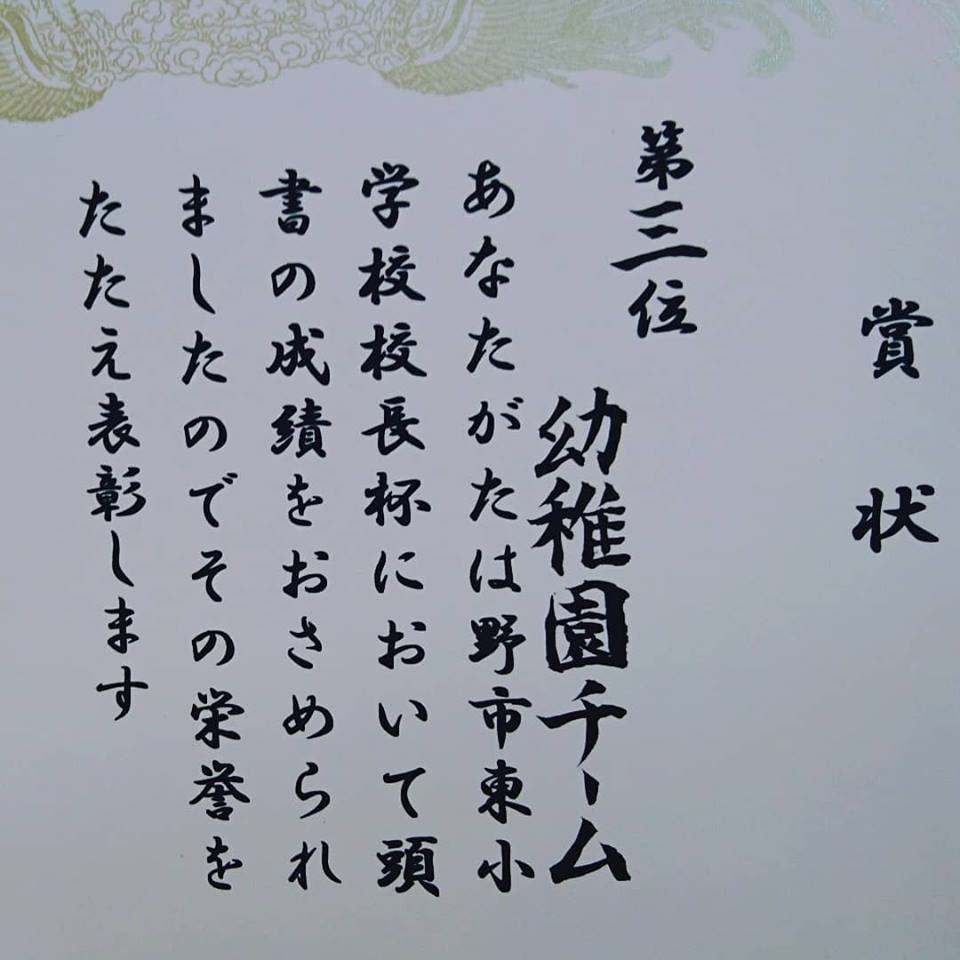 賞状
第三位
幼稚園チーム
あなたがたは野市東小
学校校長杯において頭
書の成績をおさめられ
ましたのでその栄誉を
たたえ表彰します